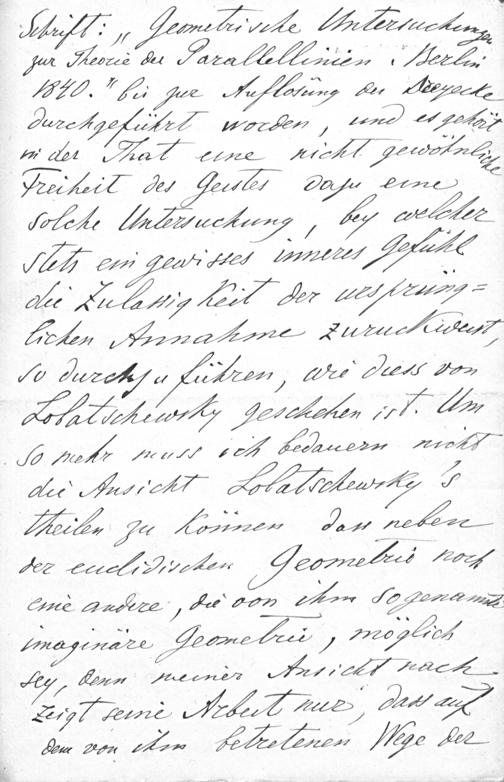 Schrift: „Geometrische Untersuchungen
zur Theorie der Parallellinien. Berlin
1840." bis zur Auflösung der Dreyecke
durchgeführt worden, und es gehört
in der That eine nicht gewöhnliche
Freiheit des Geistes dazu eine
solche Untersuchung, bey welcher
stets ein gewisses inneres Gefühl
die Zulassigkeit der ursprüng=
lichen Annahme zurückweist,
so durchzuführen, wie diess von
Lobatschewsky geschehen ist. Um
so mehr muss ich bedauern nicht
die Ansicht Lobatschewsky's
theilen zu können dass neben
der euclidischen Geometrie noch
eine andere, die von ihm sogenannte
imaginäre Geometrie, möglich
sey, denn meiner Ansicht nach
zeigt seine Arbeit nur, dass auf
dem von ihm betretenen Wege der